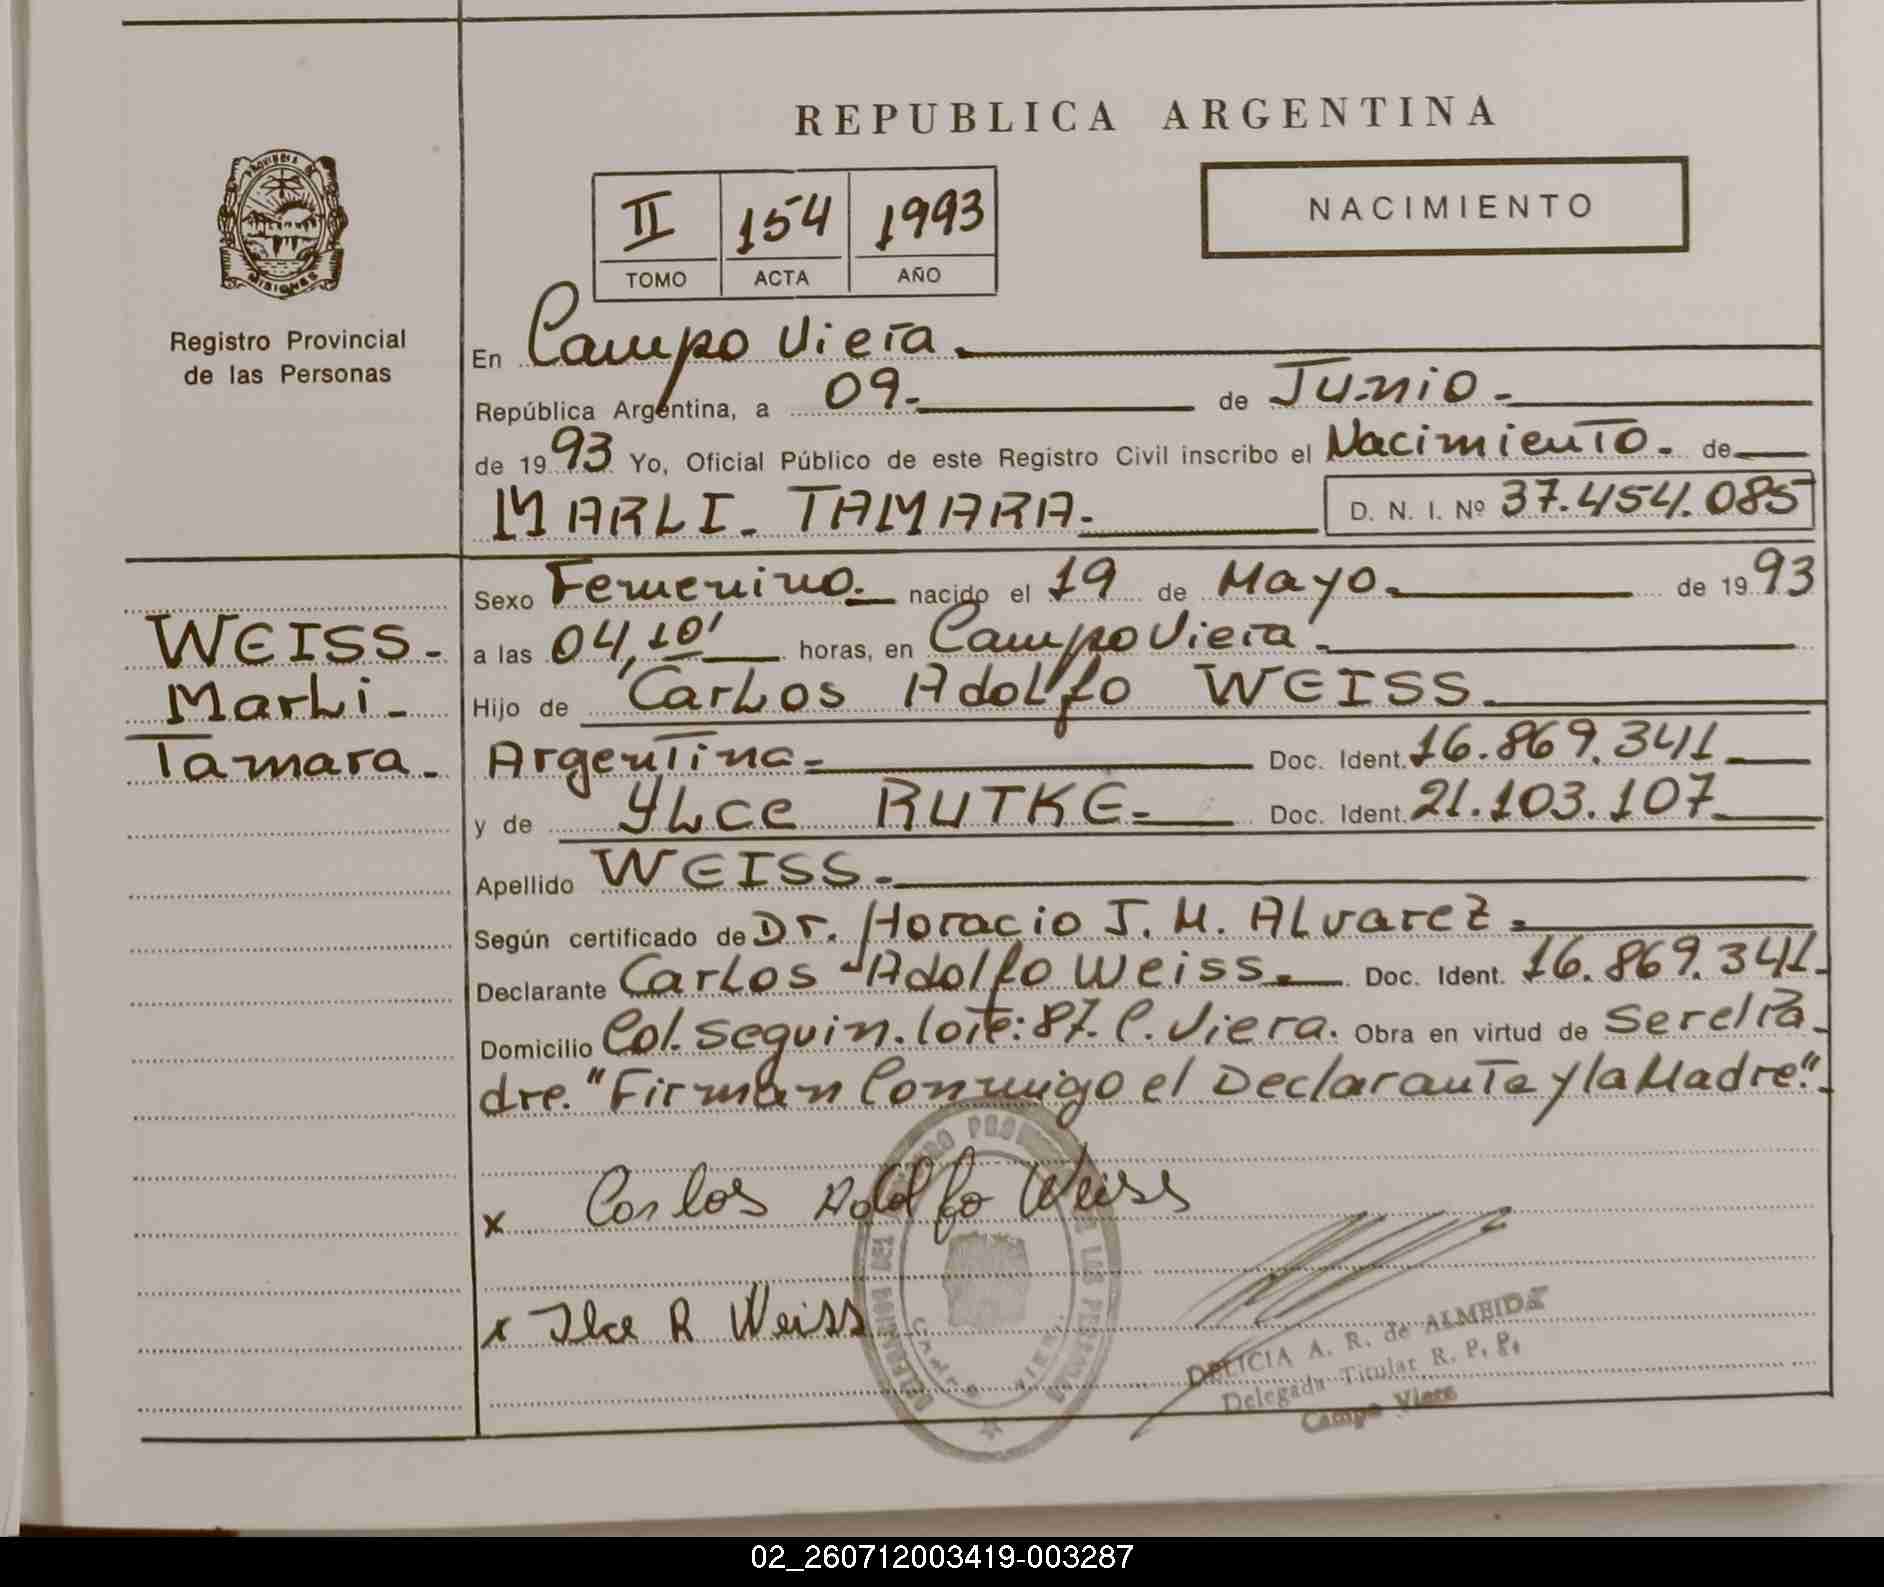 REPUBLICA ARGENTINA
PROVINCIA DE
MISIONES
Registro Provincial
de las Personas
II 154 1993
TOMO ACTA AÑO
NACIMIENTO
En Campo Viera.
República Argentina, a 09. de Junio.
de 1993 Yo, Oficial Público de este Registro Civil inscribo el Nacimiento. de
MARLI. TAMARA. D. N. I. Nº 37.454.085
WEISS.
Marli.
Tamara.
Sexo Femenino. nacido el 19 de Mayo. de 1993
a las 04,10' horas, en Campo Viera.
Hijo de Carlos Adolfo WEISS.
Argentina. Doc. Ident. 16.869.341
y de Ylce RUTKE. Doc. Ident. 21.103.107
Apellido WEISS.
Según certificado de Dr. Horacio J. M. Alvarez.
Declarante Carlos Adolfo Weiss. Doc. Ident. 16.869.341.
Domicilio Col. Seguin. lote: 87. C. Viera. Obra en virtud de ser el Pa
dre. "Firman Conmigo el Declarante y la Madre".
x Carlos Adolfo Weiss
x Ilce R Weiss
DELICIA A. R. de ALMEIDA
Delegada Titular R. P. P.
Campo Viera
02_260712003419-003287